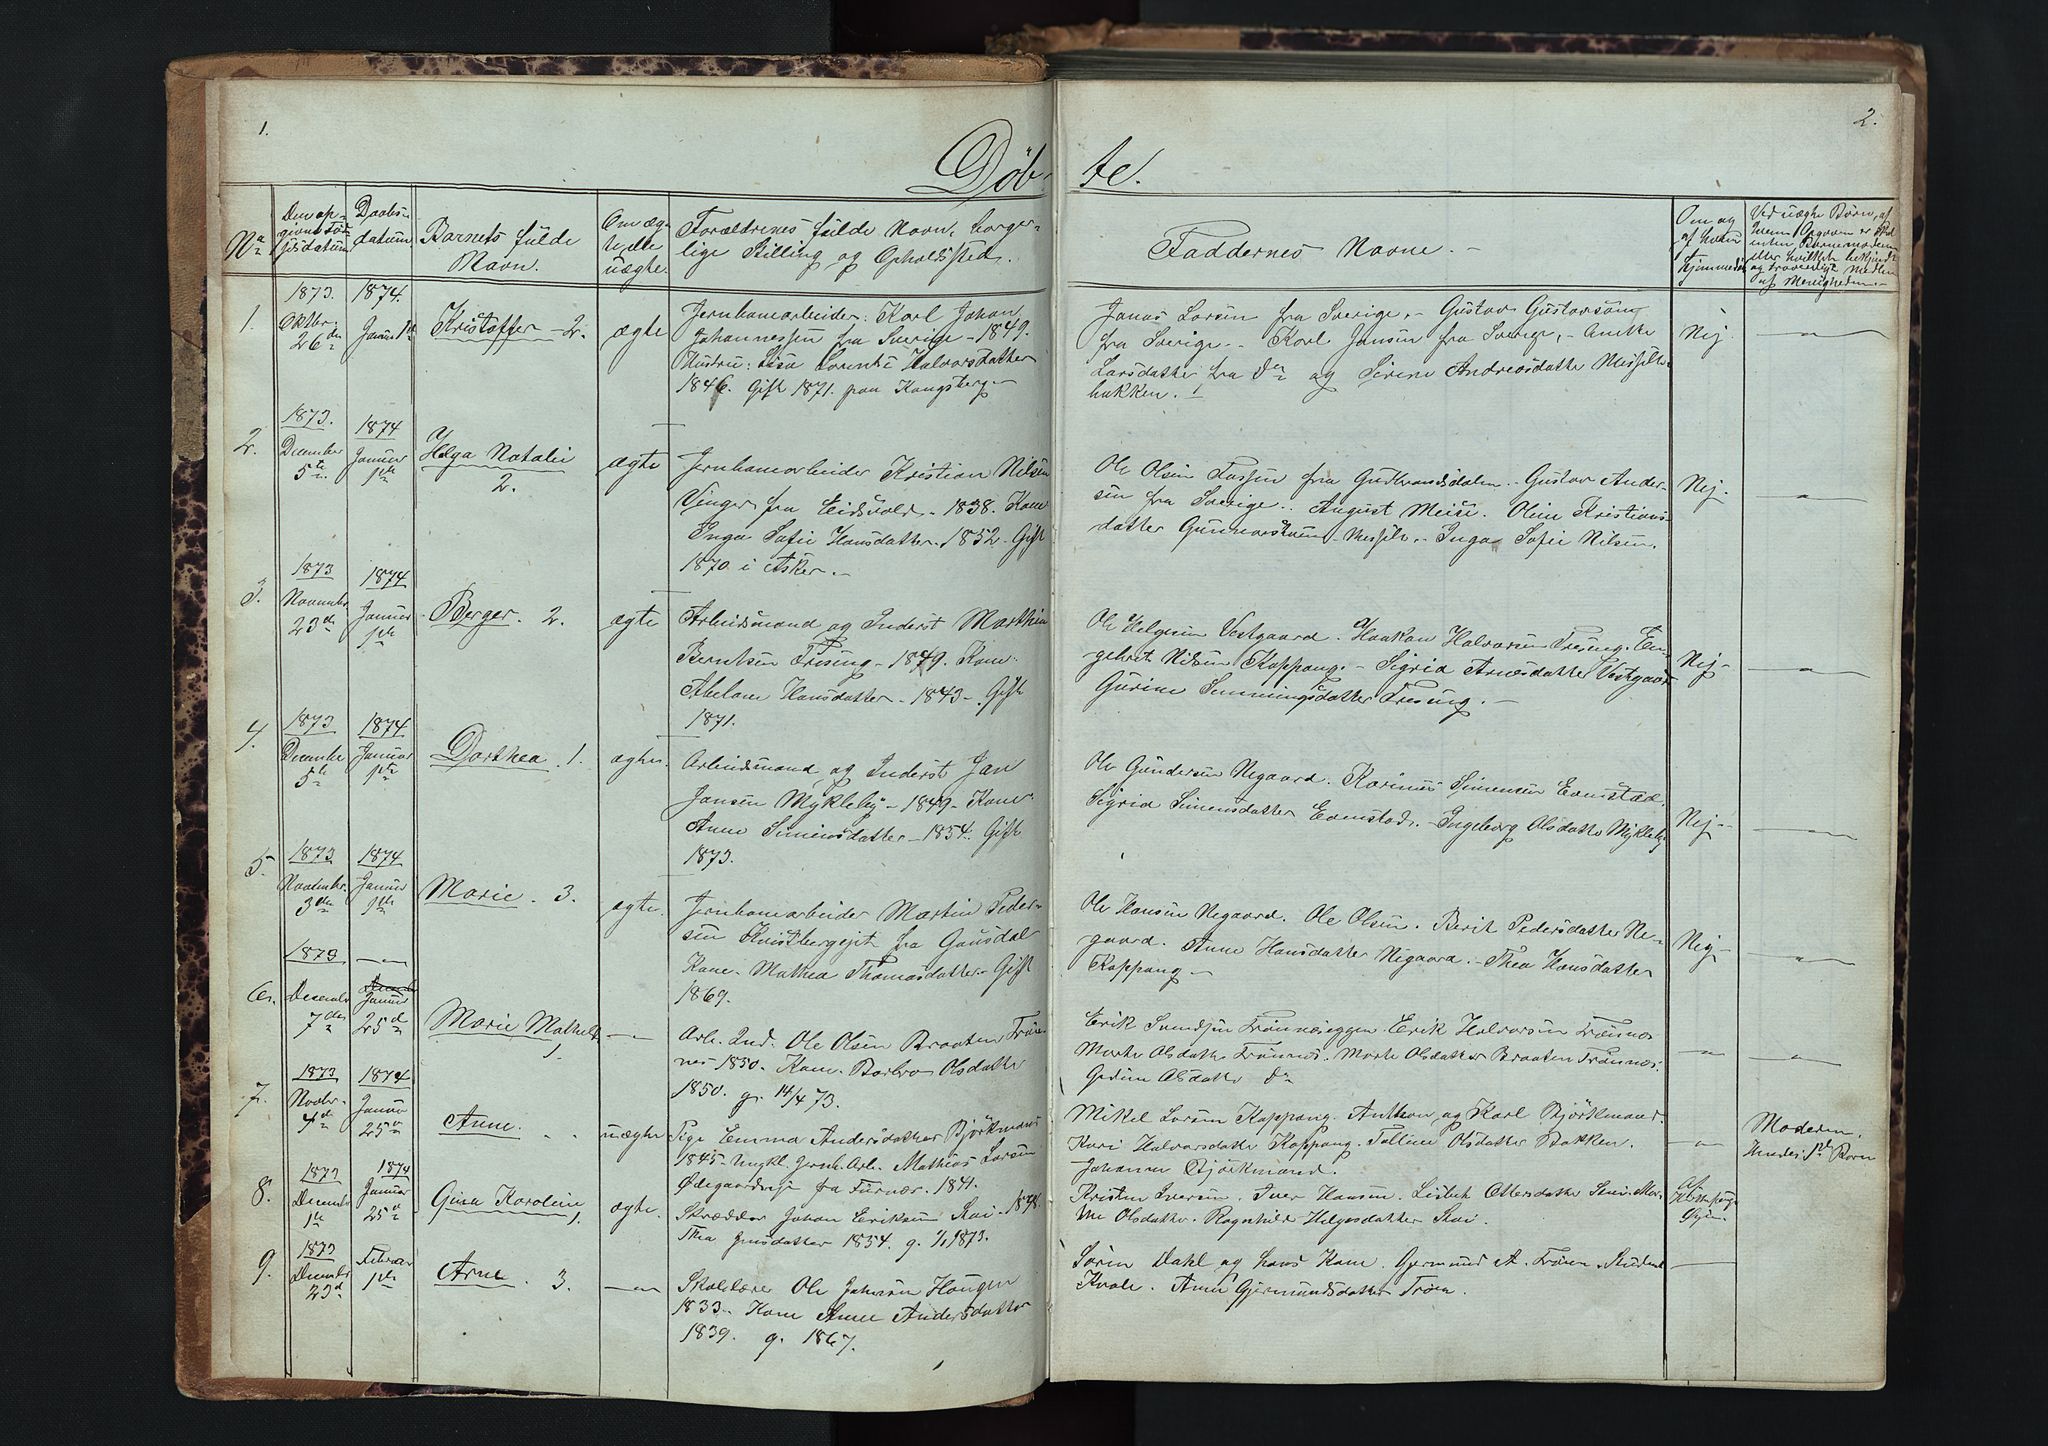 1.
2.
Døb-
te.
No
Den op-
givne Fød-
selsdatum
Daabs-
datum
Barnets fulde
Navn.
Om æg-
te elle
uægte.
Forældrenes fulde Navn, borger-
lige Stilling og Opholdssted.
Faddernes Navne.
Om og
af hvem
hjemmedøbt
Ved uægte Børn, af
hvem Opgaven er
enten Barnemoderen
eller hvilket bekjendt
og troværdigt Medlem
af Menigheden.
1.
1873.
Oktbr.
26de
1874.
Januar 1ste
Kristoffer - 2.
ægte
Jernbanearbeider Karl Johan
Johannessen fra Sverige - 1849.
Hustru: Lisa Lorentse Halvorsdatter
1846. Gift 1871 paa Kongsberg
Jonas Larsen fra Sverige, - Gustav Gustavsøn
fra Sverige. - Karl Jansen fra Sverige, -
Larsdatter fra do og Sirene Andreasdatter Messelt-
bakken.
Nej
2.
1873.
December
5te
1874
Januar
1ste
Helga Natalie
2.
ægte
Jernbanearbeider Kristian Nilsen
Vinger fra Eidsvold - 1838. Kone
Inga Sofie Hansdatter. 1852 - Gift
1870 i Asker.
Ole Olsen Fossen fra Gudbrandsdalen. - Gustav Ander-
sen fra Sverige. August. Oline Kristians-
datter Messelt. - Inga Sofie Nilsen.
Nej.
3.
1873
Novembr.
23de
1874
Januar
1ste
Berger. 2.
ægte
Arbeidsmand og Inderst Marthin
Berntsen Tresung - 1849. Kone
Abelone Hansdatter - 1843 - Gift
1871.
Ole Helgesen Vestgaard. Haakon Halvorsen Tresung. En-
gebret Nilsen Koppang. - Sigrid Arnesdatter Vestgaard
Gurine Simmingsdatter Tresung. -
Nej -
4.
1873
December
5te
1874
Januar
1ste
Dorthea. 1.
ægte.
Arbeidsmand og Inderst Jan
Jansen Mykleby - 1849 - Kone
Anne Simensdatter - 1854. Gift
1873.
Ole Gundersen Negaard. Karinus Simensen Evenstad.
Sigrid Simensdatter Evenstad. - Ingeborg Olsdatter Mykleby
Nej -
5.
1873
Novembr.
3die
1874
Januar
1ste
Marie. 3.
ægte.
Jernbanearbeider Martin Peder-
sen fra Gausdal
Kone. Mathea Thomasdatter - Gift
1869.
Ole Hansen Negaard. Ole Olsen. Berit Pedersdatter Ne-
gaard. Anne Hansdatter Negaard. - Thea Hansdatter
Koppang -
Nej -
6.
1873
Desembr
7de
Januar
25de
Marie Mathilde
1.
Arb. Ind. Ole Olsen Braaten Trøn-
nes 1850. Kone. Barbro Olsdatter
1850. g. 14/4 73.
Erik Svendsen Trønneseggen. Erik Halvorsen Trønnes
Marte Olsdatter Trønnes. Marte Olsdatter Braaten Trønnes.
Olsdatter do
7.
1873
Novbr.
4de
1874
Januar
25de
Anne.
uægte
Pige Emma Andersdatter Björkmans
1845 - Ungkl. Jernb. Arb. Mathias Larsen
Ødegaardseje fra Furnæs. 1841.
Mikel Larsen Koppang. Anthon og Karl Björkmand.
Kari Halvorsdatter Koppang. Olsdatter Bakken.
Johanne Björkmand.
Moderen.
Hendes 1ste Barn
8.
1873
Decembr
1ste
1874
Januar
25de
Gina Karoline
1.
ægte.
Skrædder Johan Eriksen Stai. 1848.
Thea Jensdatter 1854. g. 1/1 1873.
Kristen Iversen. Iver Hansen. Lisbet Ottersdatter Stai. Mar-
the Olsdatter. Ragnhild Helgesdatter Stai.
af
9.
1873
Decembr
23de
Februar
1ste
Arne. 3.
Skolelærer Ole Johnsen Haugen
1833. Kone Anne Andersdatter
1839. g. 1867.
Søren Dahl og hans Kone. Gjermund A. Trøen. Student
Kvale. Anne Gjermundsdatter Trøen.